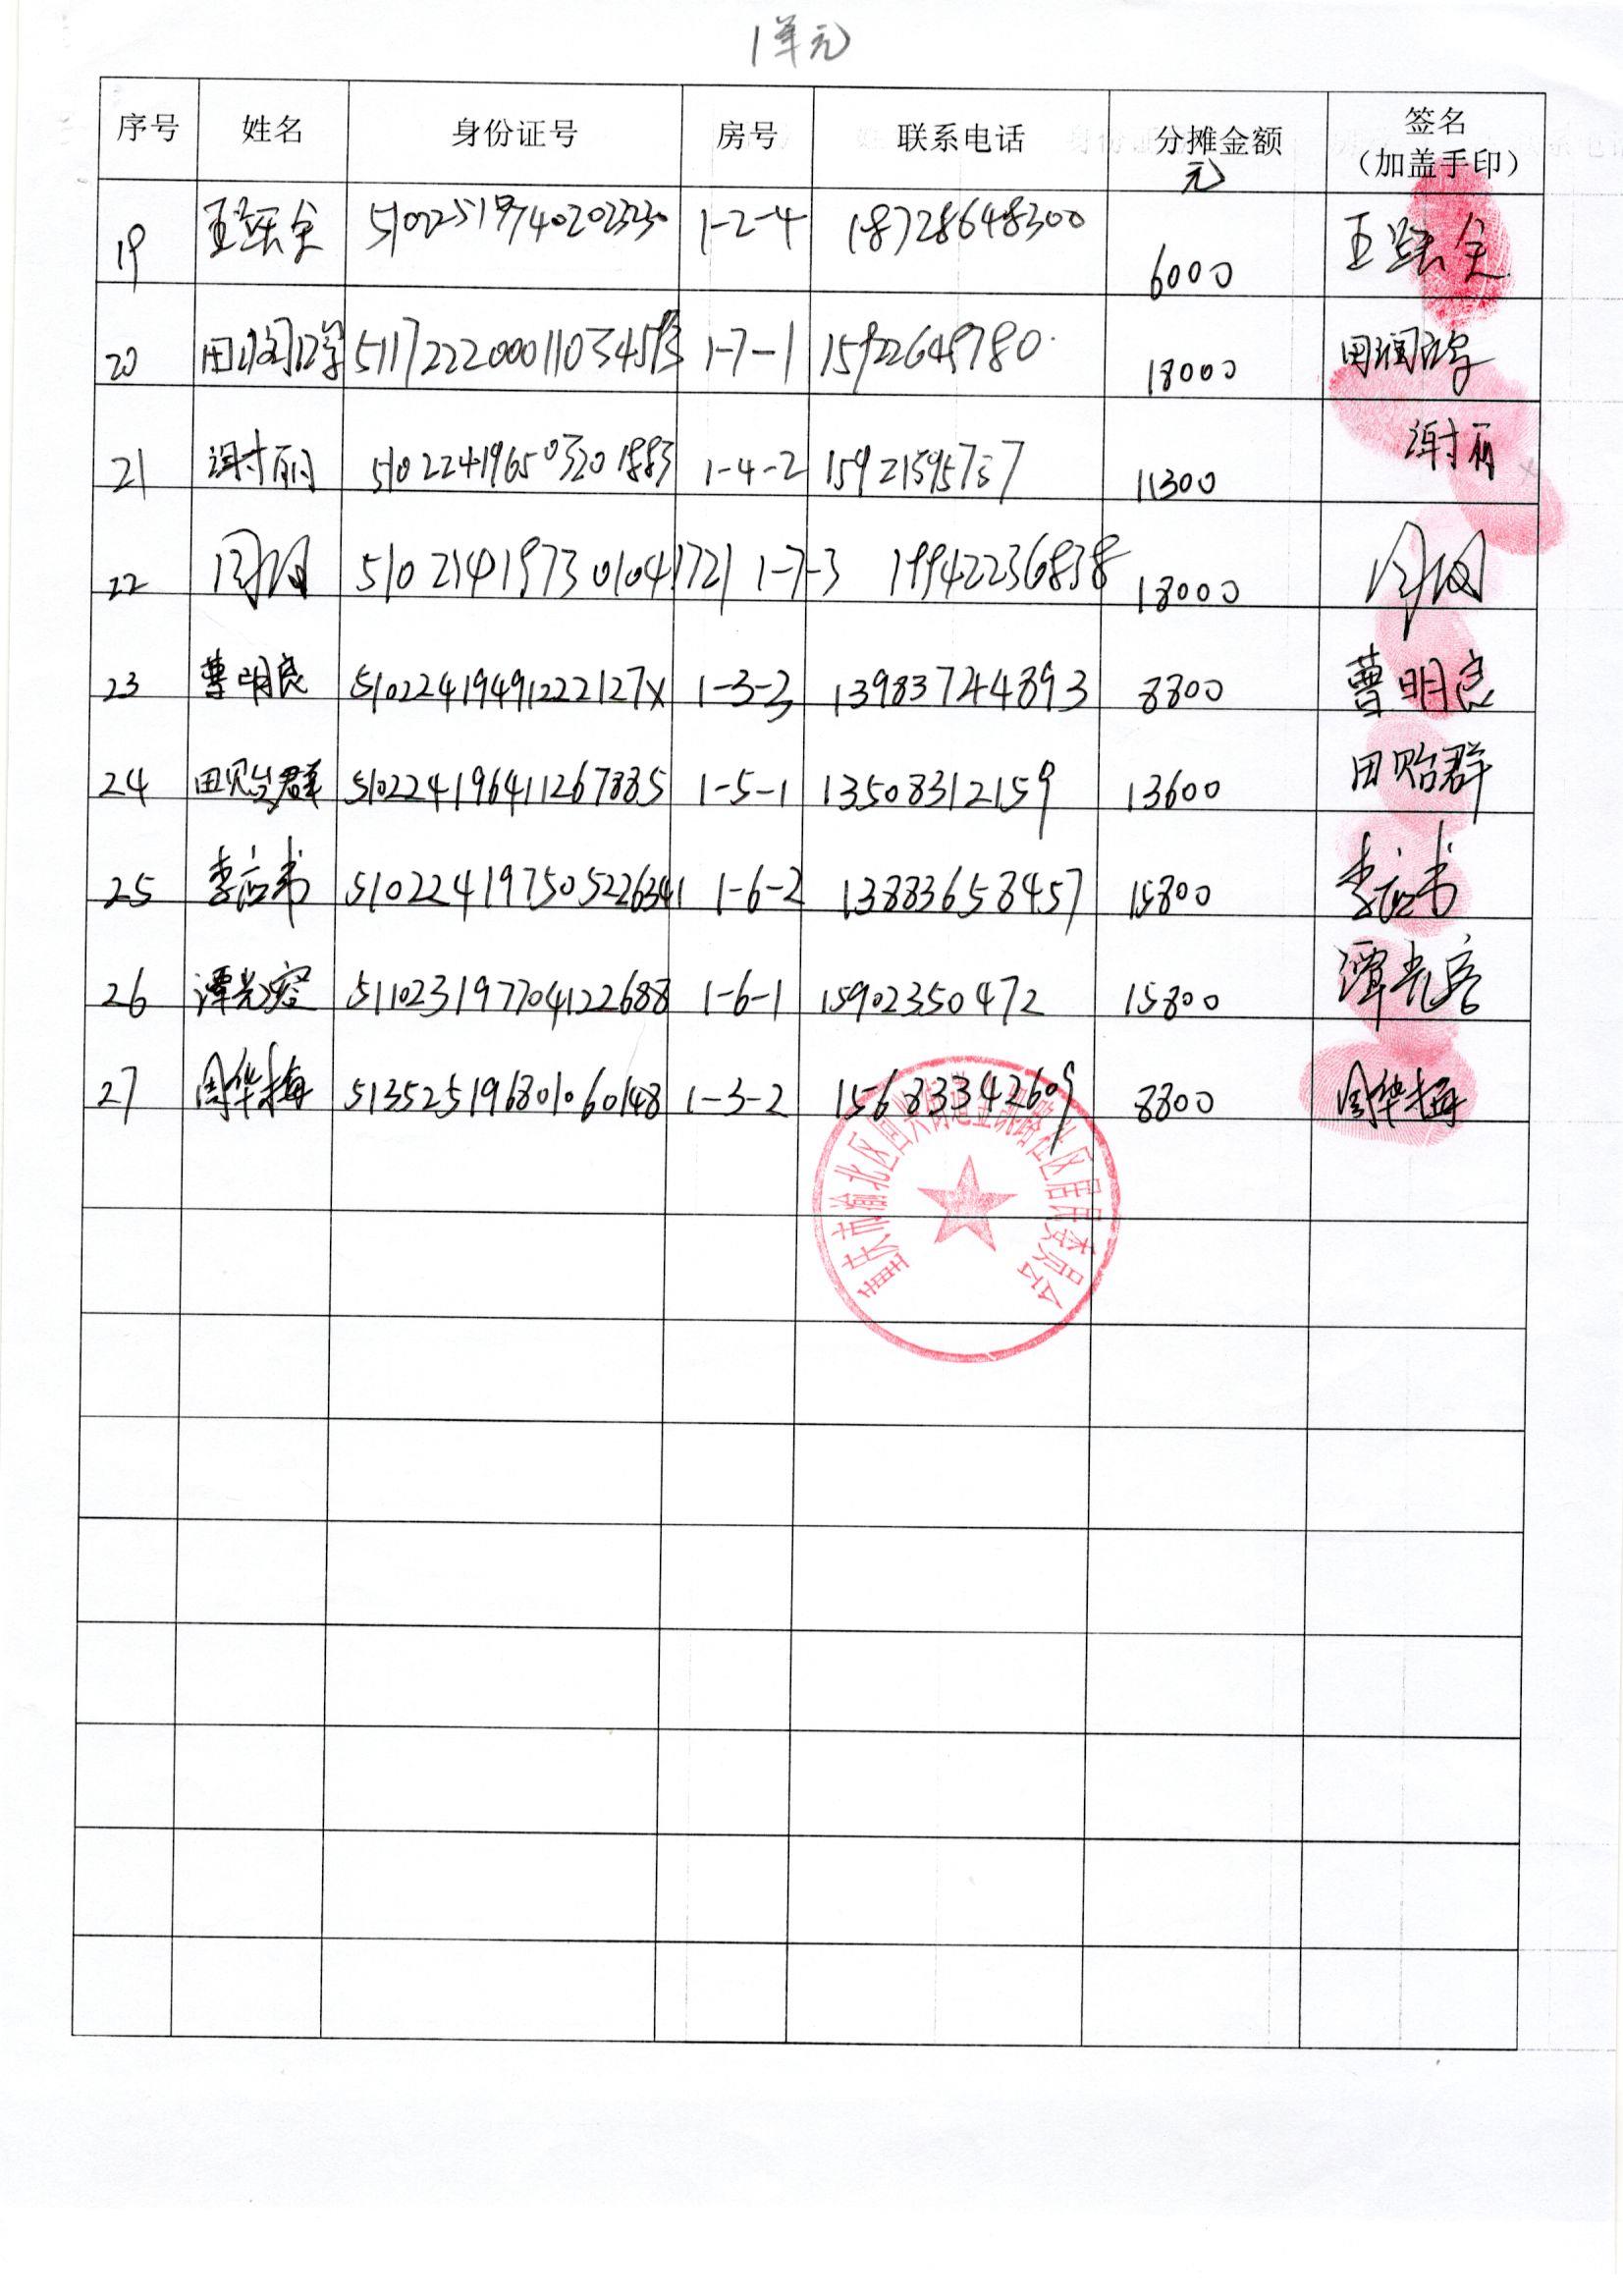 1单元
序号 姓名 身份证号 房号 联系电话 分摊金额 元 签名（加盖手印）
19 全 1-2-4 18728648300 6000 全
20 田润 1-7-1 15922649780 18000 田润
21 谢丽 510224196503201883 1-4-2 11300 谢丽
22 510214197301041721 1-7-3 19942236838 18000
23 曹明良 51022419491222127X 1-3-3 13983724893 8800 曹明良
24 田贻群 510224196411267885 1-5-1 13508312159 13600 田贻群
25 李应书 510224197505226341 1-6-2 13883658457 15800 李应书
26 谭光容 511023197704122688 1-6-1 15902350472 15800 谭光容
27 周华梅 513525196801060148 1-3-2 15683342609 8800 周华梅
重庆市渝北区回兴街道社区居民委员会